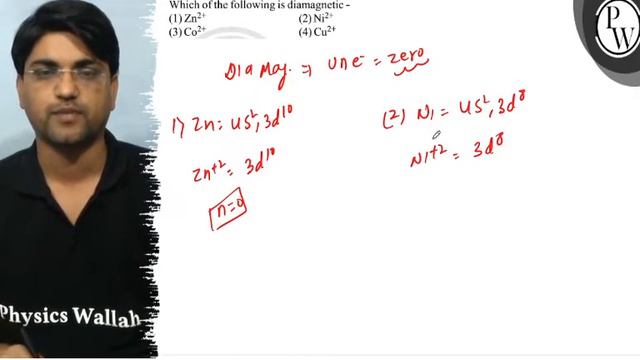 Which of the following is diamagnetic -
(1) Zn²⁺ (2) Ni²⁺
(3) Co²⁺ (4) Cu²⁺
Dia Mag. ⇒ Un e⁻ = zero
1) Zn = 4s², 3d¹⁰
Zn⁺² = 3d¹⁰
n=0
(2) Ni = 4s², 3d⁸
Ni⁺² = 3d⁸
PW
Physics Wallah